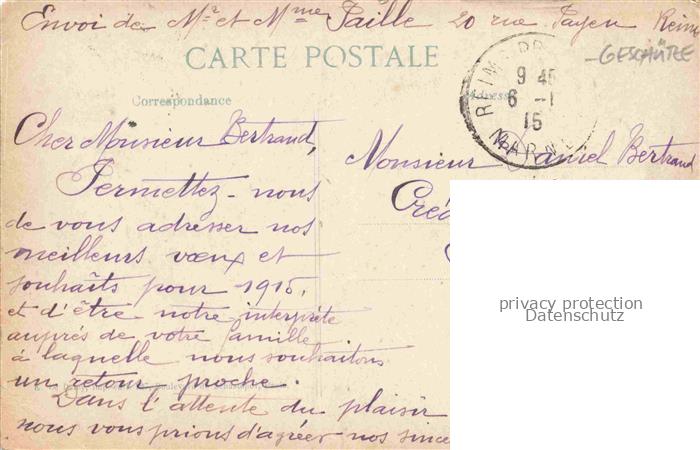 Envoi de Mr et Mme Paille 20 rue Payen Reims
GESCHÜTZE
CARTE POSTALE
REIMS
9 45
6 -1
15
MARNE
Correspondance
Adresse
Cher Monsieur Bertrand,
Permettez-nous
de vous adresser nos
meilleurs vœux et
souhaits pour 1915,
et d'être notre interprète
auprès de votre famille
à laquelle nous souhaitons
un retour proche.
Dans l'attente du plaisir
nous vous prions d'agréer nos since
Monsieur Daniel Bertrand
Créd
privacy protection
Datenschutz